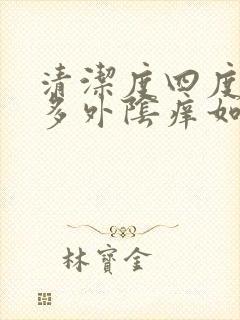 清潔度四度
多外陰痒如
林寶金